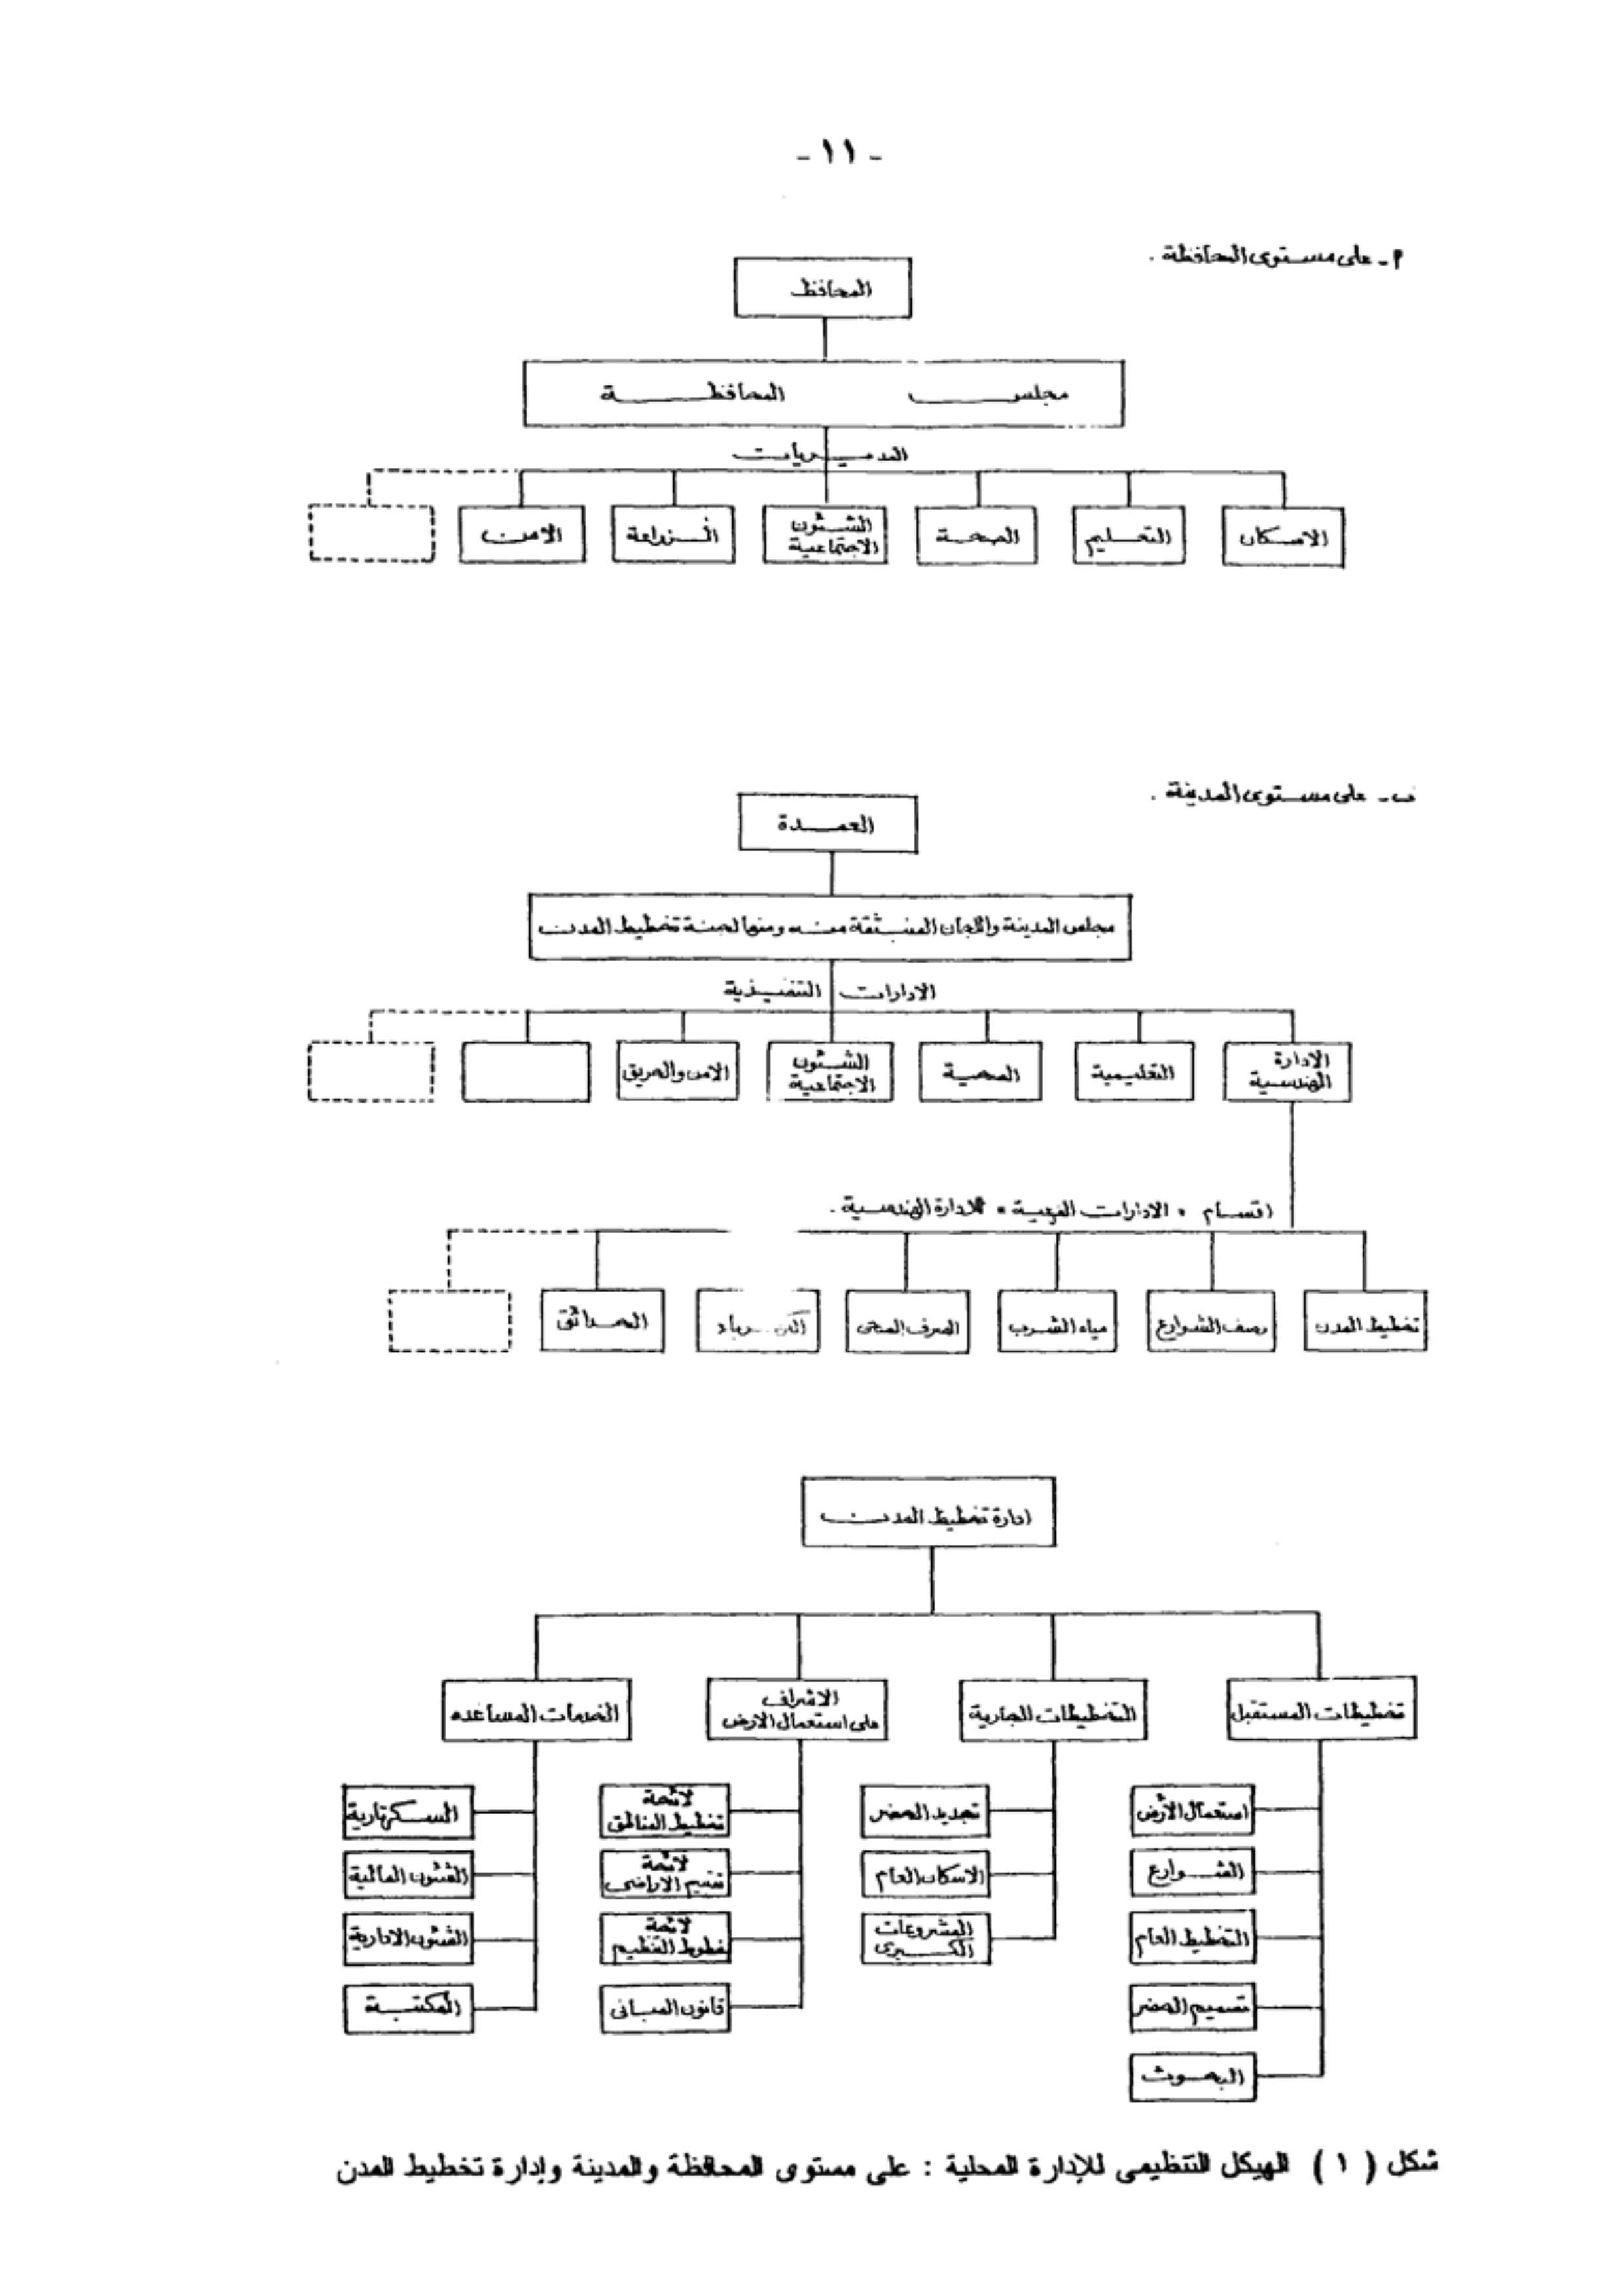 - ١١ -
أ - على مستوى المحافظة .
المحافظ
مجلس المحافظة
المديريات
الاسكان
التعليم
الصحة
الشئون
الاجتماعية
الزراعة
الامن
ب - على مستوى المدينة .
العمدة
مجلس المدينة واللجان المنبثقة منه ومنها لجنة تخطيط المدن
الادارات التنفيذية
الادارة
الهندسية
التعليمية
الصحية
الشئون
الاجتماعية
الامن والحريق
اقسام " الادارات الفرعية " للادارة الهندسية .
تخطيط المدن
رصف الشوارع
مياه الشرب
الصرف الصحى
الكهرباء
الحدائق
ادارة تخطيط المدن
تخطيطات المستقبل
التخطيطات الجارية
الاشراف
على استعمال الارض
الخدمات المساعده
استعمال الأرض
الشوارع
التخطيط العام
تصميم الحضر
البحوث
تجديد الحضر
الاسكان العام
المشروعات
الكبرى
لائحة
تخطيط المناطق
لائحة
تقسيم الاراضى
لائحة
خطوط التنظيم
قانون المبانى
السكرتارية
الشئون المالية
الشئون الادارية
المكتبة
شكل ( ١ ) الهيكل التنظيمى للإدارة المحلية : على مستوى المحافظة والمدينة وإدارة تخطيط المدن